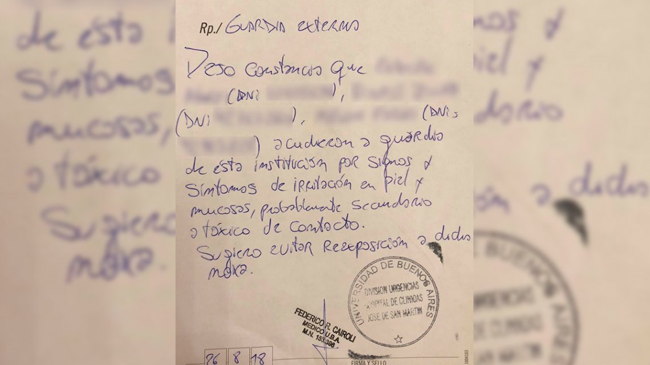 Rp./ Guardia externa
Dejo constancia que
(DNI ),
(DNI ), (DNI:
) acudieron a guardia
de esta institución por signos y
síntomas de irritación en piel y
mucosas, probablemente secundario
a tóxico de contacto.
Sugiero evitar reexposición a dicha
noxa.
UNIVERSIDAD DE BUENOS AIRES
DIVISION URGENCIAS
HOSPITAL DE CLINICAS
JOSE DE SAN MARTIN
FEDERICO R. CAIROLI
MEDICO U.B.A.
M.N.
26 8 18
FIRMA Y SELLO